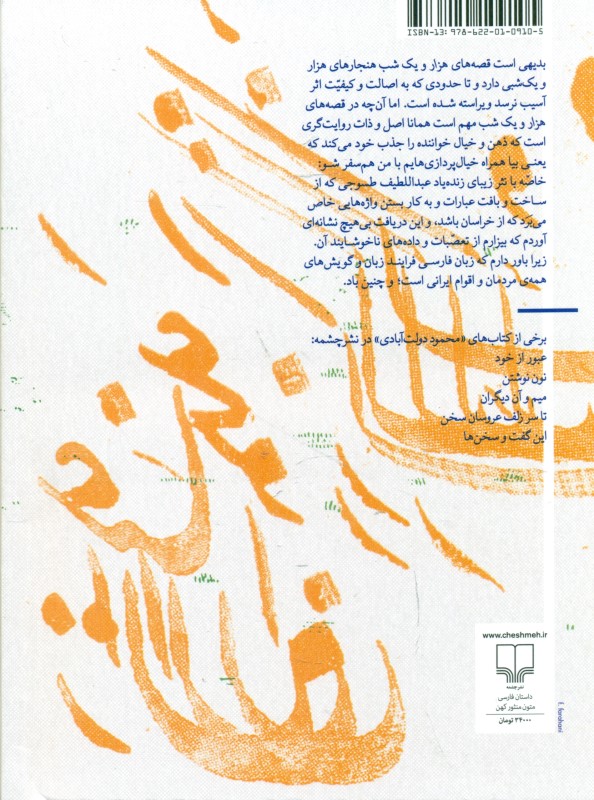 ISBN-13: 978-622-01-0910-5
بدیهی است قصه‌های هزار و یک شب هنجارهای هزار
و یک‌شبی دارد و تا حدودی که به اصالت و کیفیّت اثر
آسیب نرسد ویراسته شده است. اما آن‌چه در قصه‌های
هزار و یک شب مهم است همانا اصل و ذات روایت‌گری
است که ذهن و خیال خواننده را جذب خود می‌کند که
یعنی بیا همراه خیال‌پردازی‌هایم با من هم‌سفر شو؛
خاصّه با نثر زیبای زنده‌یاد عبداللطیف طسوجی که از
ساخت و بافت عبارات و به کار بستن واژه‌هایی خاص
می‌برَد که از خراسان باشد، و این دریافت بی‌هیچ نشانه‌ای
آوردم که بیزارم از تعصّبات و داده‌های ناخوشایند آن.
زیرا باور دارم که زبان فارسی فرایند زبان و گویش‌های
همه‌ی مردمان و اقوام ایرانی است؛ و چنین باد.
برخی از کتاب‌های «محمود دولت‌آبادی» در نشرچشمه:
عبور از خود
نون نوشتن
میم و آن دیگران
تا سر زلف عروسان سخن
این گفت و سخن‌ها
www.cheshmeh.ir
نشرچشمه
داستان فارسی
متون منثور کهن
۳۴۰۰۰ تومان
f. farahani